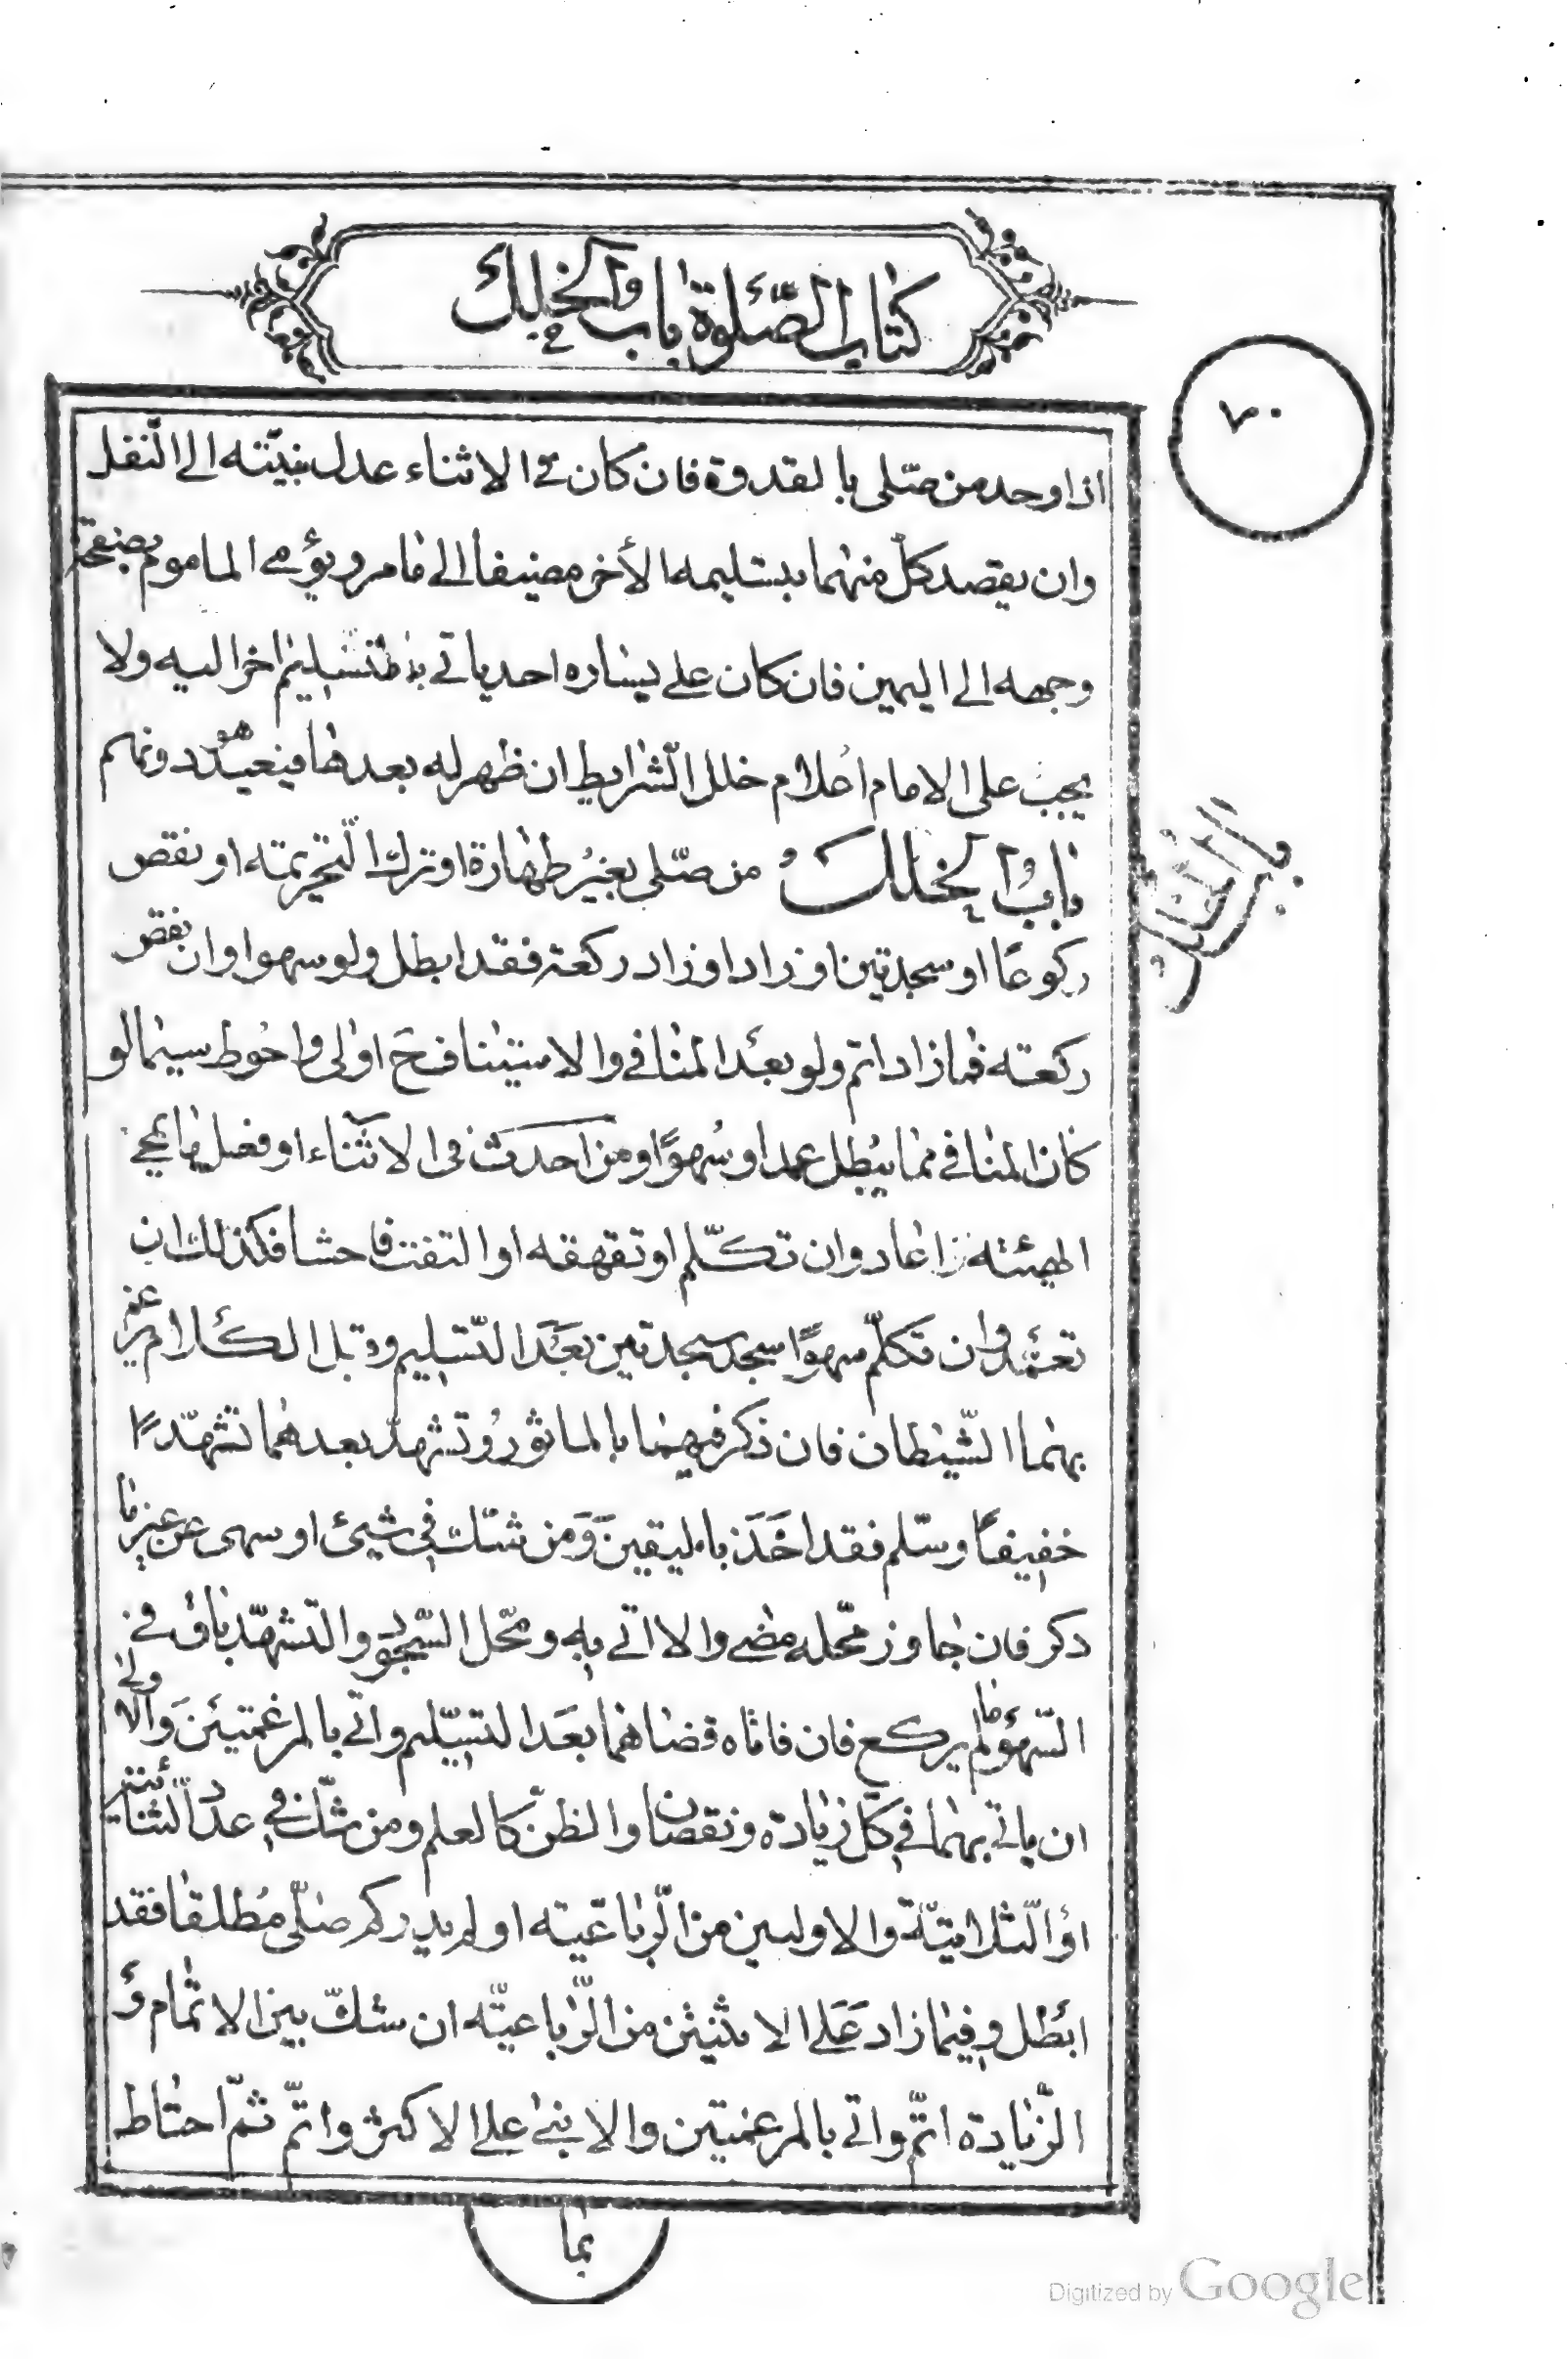 كتاب الصلوة باب الخلل
٧٠
اذا وجد من صلى بالقدوة فان كان في الاثناء عدل بنيّته الى النّفل
وان يقصد كلّ منهما بتسليمه الأخر مضيفا الى مامر ويؤمى الماموم بصفحة
وجهه الى اليمين فان كان على يساره احد ياتى بتسليم اخر اليه ولا
يجب على الامام اعلام خلل الشّرايط ان ظهر له بعدها فيعيد هو دونهم
باب الخلل من صلّى بغير طهارة او ترك التّحريمته او نقص
باب الخلل
ركوعًا او سجدتين او زاد او زاد ركعة فقد ابطل ولو سهوا وان نقص
ركعته فما زاد اتم ولو بعد المنافى والاستيناف ح اولى واحوط سيما لو
كان المنافى مما يبطل عمدا وسهوًا ومن احدث فى الاثناء او فعل ما يمحى
الهيئته اعاد وان تكلّم او تقهقه او التفت فاحشا فكذلك ان
تعمّد وان تكلّم سهوًا سجد سجدتين بعد التّسليم وقبل الكلام يرغم
بهما الشّيطان فان ذكر فيهما بالماثور وتشهدّ بعدهما تشهّدًا
خفيفًا وسلّم فقد اخذ باليقين ومن شك في شيئ او سهى عن غير ما
ذكر فان جاوز محّله مضى والا اتى به ومحّل السّجود والتّشهّد باق فى
السّهو ما لم يركع فان فاتاه قضاهما بعد التسليم واتى بالمرغمتين والاولى
ان ياتى بهما في كلّ زيادة ونقصان والظنّ كالعلم ومن شكّ فى عدد الثنائية
او الثلاثيّة والاوليين من الرّباعيّته او لم يدر كم صلّى مطلقا فقد
ابطل وفيما زاد على الاثنين من الرّباعيّته ان شكّ بين الاتمام و
الزّيادة اتمّ واتى بالمرغمتين والا بنى على الاكثر واتمّ ثمّ احتاط
بما
Digitized by Google